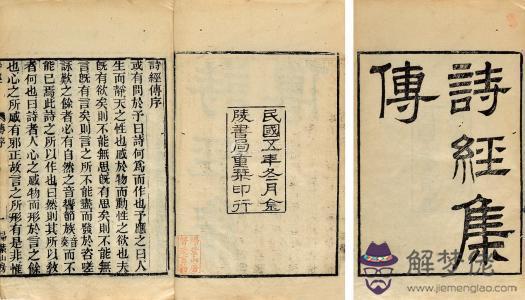 詩經集
傳
民國五年冬月金
陵書局重槧印行
詩經傳序
或有問於予曰詩何爲而作也予應之曰人
生而靜天之性也感於物而動性之欲也夫
旣有欲矣則不能無思旣有思矣則不能無
言旣有言矣則言之所不能盡而發於咨嗟
詠歎之餘者必有自然之音響節族而不
能已焉此詩之所以作也曰然則其所以敎
者何也曰詩者人心之感物而形於言之餘
也心之所感有邪正故言之所形有是非惟
解梦佬
www.jiemenglao.com